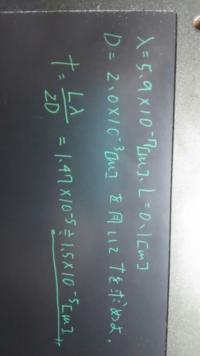 λ = 5.9×10⁻⁷[m], L = 0.1[m]
D = 2.0×10⁻³[m] を用いて tを求めよ.
t = Lλ/2D = 1.47×10⁻⁵ ≒ 1.5×10⁻⁵[m]